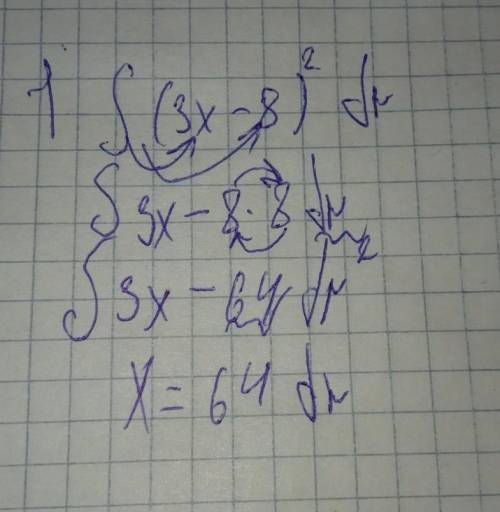 1 ∫ (3x - 8)² dx
∫ 3x - 8 · 8 dx
2
∫ 3x - 64 dx
X = 64 dx